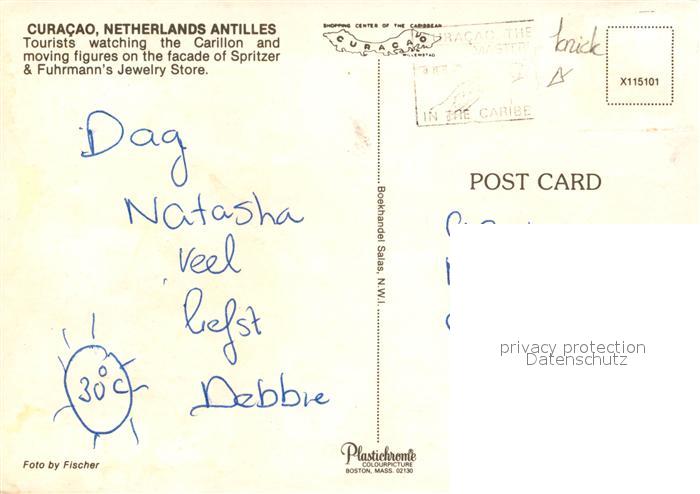 CURAÇAO, NETHERLANDS ANTILLES
Tourists watching the Carillon and
moving figures on the facade of Spritzer
& Fuhrmann's Jewelry Store.
Dag
Natasha
veel
liefst
Debbie
30°C
Foto by Fischer
SHOPPING CENTER OF THE CARIBBEAN
CURAÇAO
WILLEMSTAD
CURAÇAO THE
IN THE CARIBE
knick
X115101
Boekhandel Salas, N.W.I.
POST CARD
privacy protection
Datenschutz
Plastichrome
COLOURPICTURE
BOSTON, MASS. 02130